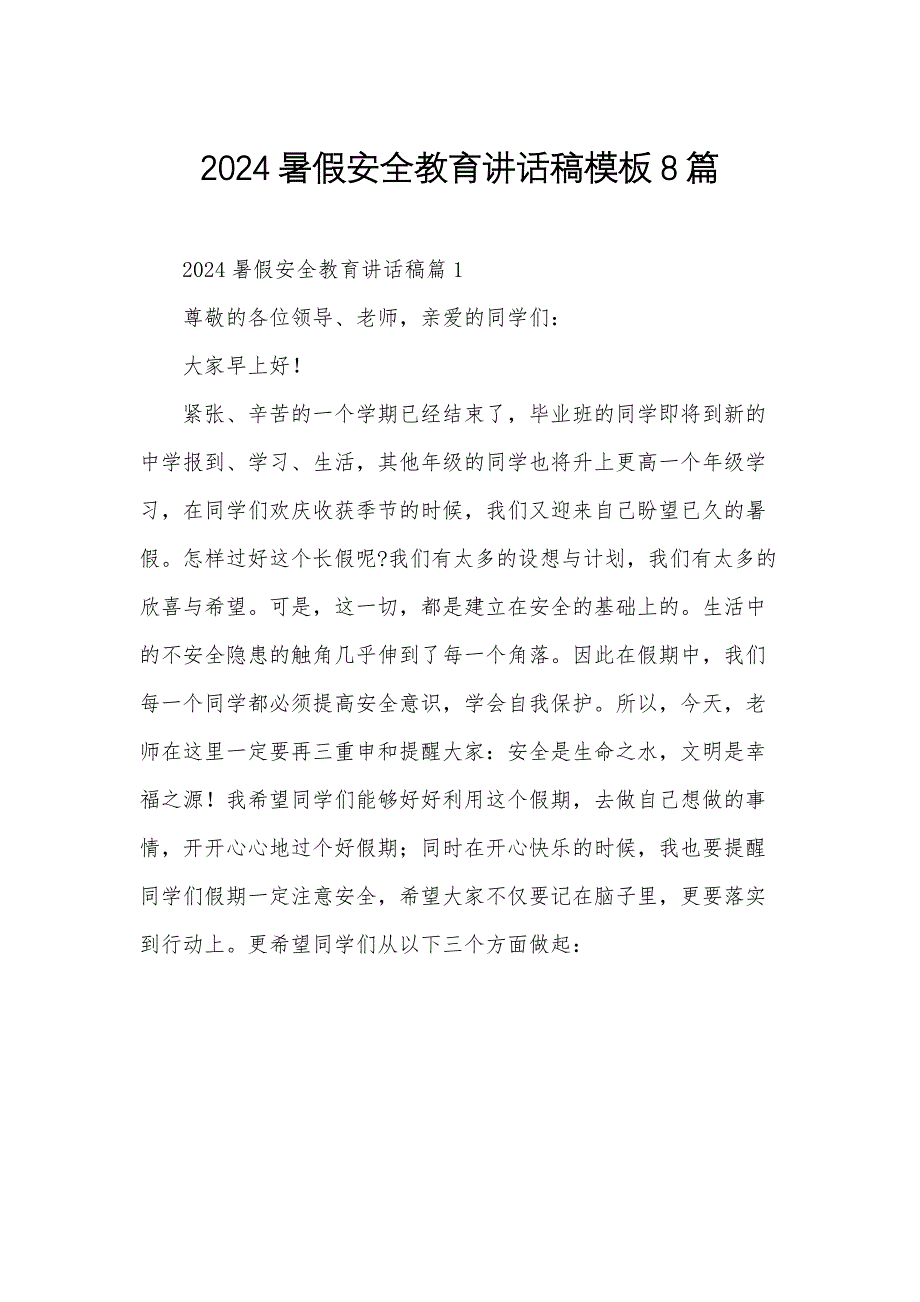 2024暑假安全教育讲话稿模板8篇
2024 暑假安全教育讲话稿篇 1
尊敬的各位领导、老师，亲爱的同学们：
大家早上好！
紧张、辛苦的一个学期已经结束了，毕业班的同学即将到新的
中学报到、学习、生活，其他年级的同学也将升上更高一个年级学
习，在同学们欢庆收获季节的时候，我们又迎来自己盼望已久的暑
假。怎样过好这个长假呢?我们有太多的设想与计划，我们有太多的
欣喜与希望。可是，这一切，都是建立在安全的基础上的。生活中
的不安全隐患的触角几乎伸到了每一个角落。因此在假期中，我们
每一个同学都必须提高安全意识，学会自我保护。所以，今天，老
师在这里一定要再三重申和提醒大家：安全是生命之水，文明是幸
福之源！我希望同学们能够好好利用这个假期，去做自己想做的事
情，开开心心地过个好假期；同时在开心快乐的时候，我也要提醒
同学们假期一定注意安全，希望大家不仅要记在脑子里，更要落实
到行动上。更希望同学们从以下三个方面做起：